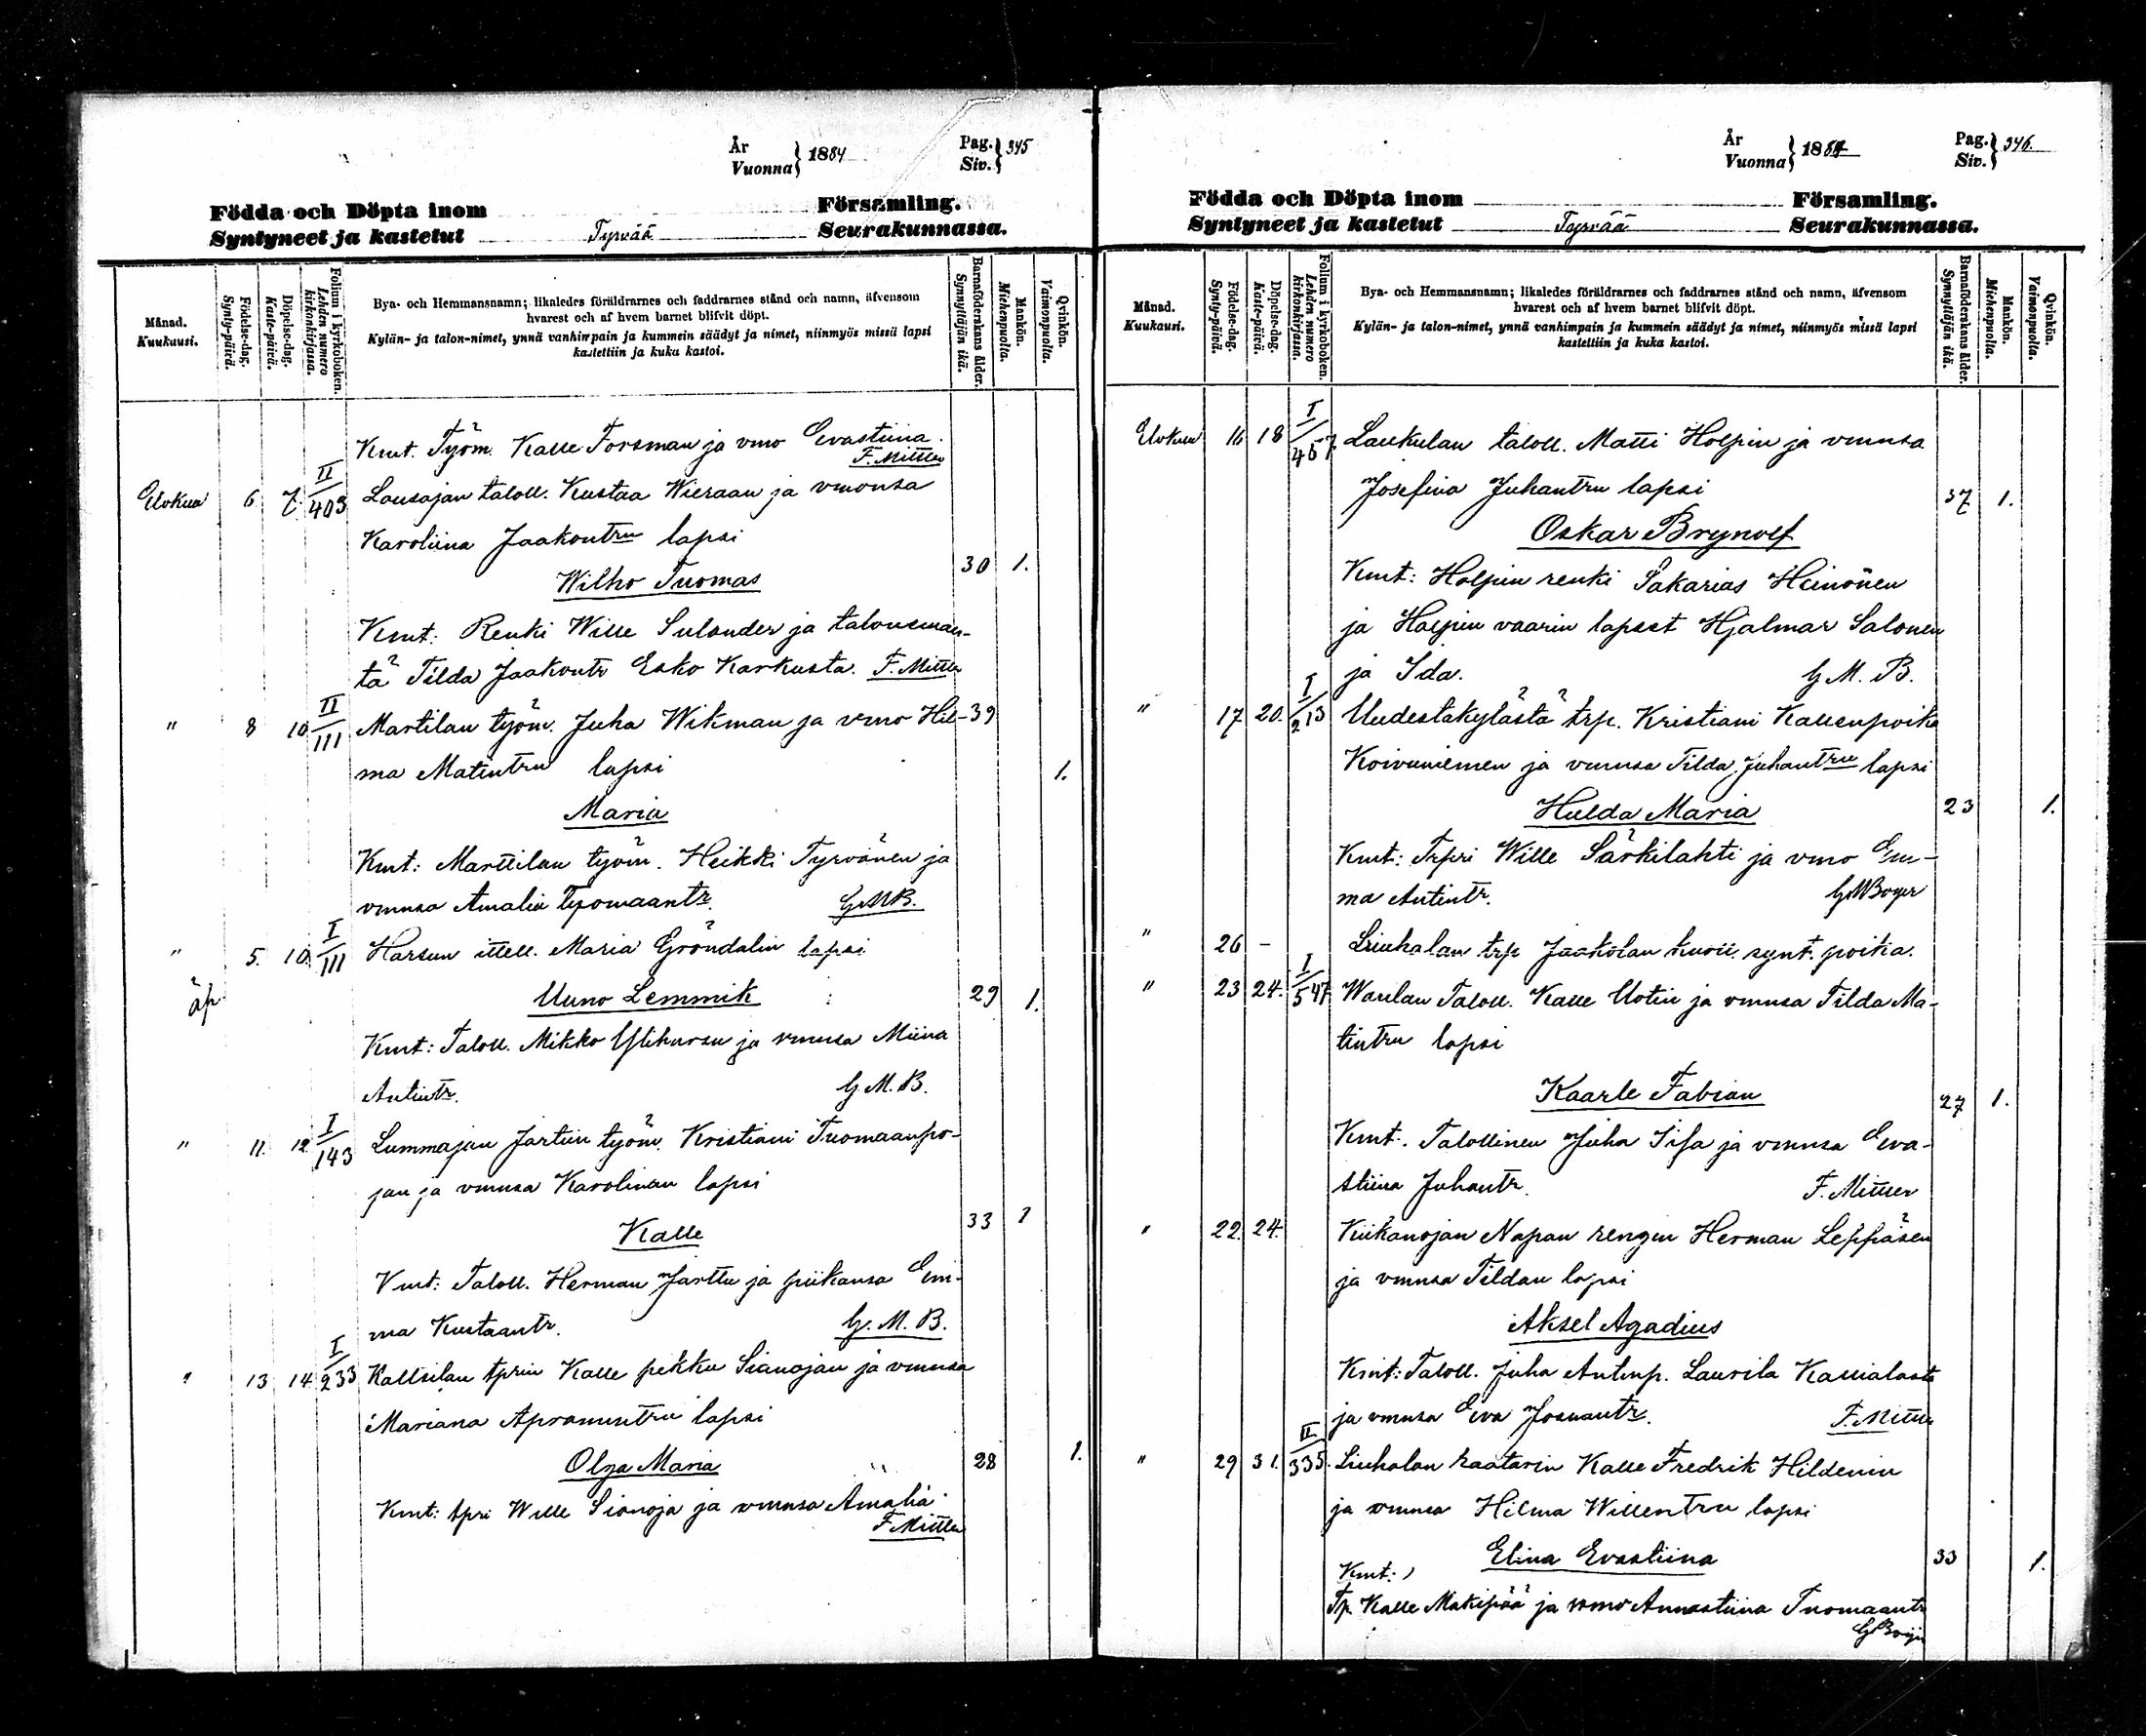 År
Vuonna } 1884
Pag.
Siv. } 345
Födda och Döpta inom Församling.
Syntyneet ja kastetut Tyrvää Seurakunnassa.
Månad.
Kuukausi.
Födelse-dag.
Synty-päivä.
Döpelse-dag.
Kaste-päivä.
Folium i kyrkoboken.
Lehden numero
kirkonkirjassa.
Bya- och Hemmansnamn; likaledes föräldrarnes och faddrarnes stånd och namn, äfvensom
hvarest och af hvem barnet blifvit döpt.
Kylän- ja talon-nimet, ynnä vanhimpain ja kummein säädyt ja nimet, niinmyös missä lapsi
kastettiin ja kuka kastoi.
Barnaföderskans ålder.
Synnyttäjän ikä.
Mankön.
Miehenpuolta.
Qvinkön.
Vaimonpuolta.
Kmt. Työm. Kalle Forsman ja vmo Evastiina.
F. Mittler
Elokuu 6 7. II/403 Lausajan taloll. Kustaa Wieraan ja vmonsa
Karoliina Jaakontrn lapsi
Wilho Tuomas 30 1.
Kmt: Renki Wille Sulander ja talonemän-
tä Tilda Jaakontr Esko Karkusta. F. Mittler
" 8 10 II/111 Martilan työm. Juha Wikman ja vmo Hil- 39
ma Matintrn lapsi 1.
Maria
Kmt: Marttilan työm. Heikki Tyrvänen ja
vmnsa Amalia Tuomaantr. G.M.B.
" 5. 10. I/111 Harsun ittell. Maria Gröndalin lapsi
äp. Uuno Lemmik 29 1.
Kmt: Taloll. Mikko Ylihursu ja vmnsa Miina
Antintr. G. M. B.
" 11. 12. I/143 Lummajan Jartiin työm. Kristiani Tuomaanpo-
jan ja vmnsa Karolinan lapsi
Kalle 33 1
Kmt: Taloll. Herman Jarttu ja piikansa Em-
ma Kustaantr. G. M. B.
" 13 14. I/233 Kallsilan tprin Kalle pekku Sianojan ja vmnsa
Mariana Apramintrn lapsi
Olga Maria 28 1.
Kmt: tpri Wille Sianoja ja vmnsa Amalia.
F. Mittler
År
Vuonna } 1884
Pag.
Siv. } 346.
Födda och Döpta inom Församling.
Syntyneet ja kastetut Tyrvää Seurakunnassa.
Månad.
Kuukausi.
Födelse-dag.
Synty-päivä.
Döpelse-dag.
Kaste-päivä.
Folium i kyrkoboken.
Lehden numero
kirkonkirjassa.
Bya- och Hemmansnamn; likaledes föräldrarnes och faddrarnes stånd och namn, äfvensom
hvarest och af hvem barnet blifvit döpt.
Kylän- ja talon-nimet, ynnä vanhimpain ja kummein säädyt ja nimet, niinmyös missä lapsi
kastettiin ja kuka kastoi.
Barnaföderskans ålder.
Synnyttäjän ikä.
Mankön.
Miehenpuolta.
Qvinkön.
Vaimonpuolta.
Elokuu 16 18 I/457 Laukulan taloll. Matti Holpin ja vmnsa
Josefina Juhantrn lapsi 37 1.
Oskar Brynolf
Kmt: Holpin renki Sakarias Heinonen
ja Holpin vaarin lapset Hjalmar Salonen
ja Ida. G. M. B.
" 17. 20. I/213 Uudestakylästä trp. Kristiani Kallenpoika
Koivuniemen ja vmnsa Tilda Juhantrn lapsi
Hulda Maria 23 1.
Kmt: Trpri Wille Särkilahti ja vmo Em-
ma Antintr. G.M Boyer
" 26 – Liuhalan trp Jaakolan kuoll. synt. poika.
" 23 24. I/547 Warilan Taloll. Kalle Uotin ja vmnsa Tilda Ma-
tintrn lapsi
Kaarle Fabian 27 1.
Kmt. Talollinen Juha Sifa ja vmnsa Eva-
stiina Juhantr. F. Mittler
" 22. 24. Kiikanojan Napan rengin Herman Leppäsen
ja vmnsa Tildan lapsi
Aksel Agadius
Kmt: Taloll. Juha Antinp. Laurila Kallialasta
ja vmnsa Eva Josuantr. F. Mittler
" 29 31. II/335. Liuhalan raatarin Kalle Fredrik Hildenin
ja vmnsa Hilma Willentrn lapsi
Elina Evastiina 33 1.
Kmt:
Tp. Kalle Mäkipää ja vmo Annastiina Tuomaantr